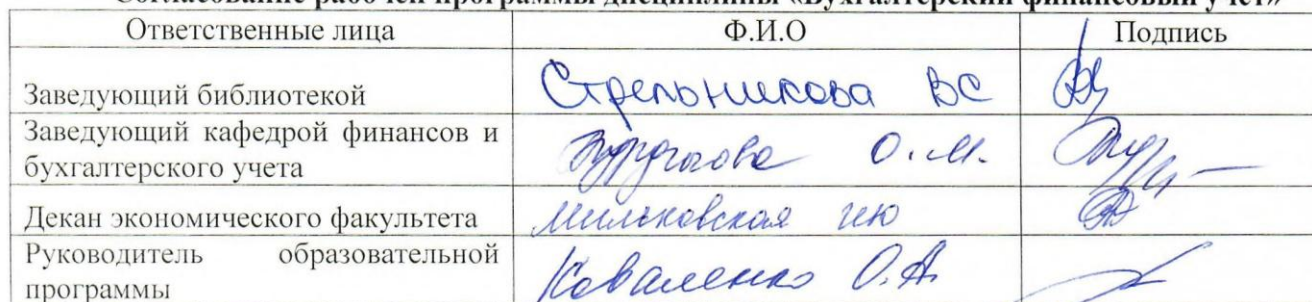 Согласование рабочей программы дисциплины «Бухгалтерский финансовый учет»
Ответственные лица Ф.И.О Подпись
Заведующий библиотекой Стрельникова ВС
Заведующий кафедрой финансов и
бухгалтерского учета О.М.
Декан экономического факультета Мильковская ИЮ
Руководитель образовательной
программы Коваленко О.А.